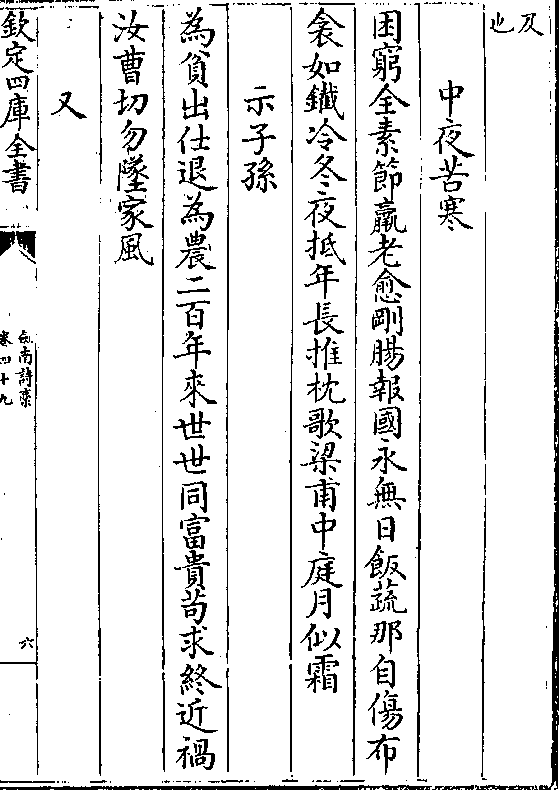 及
也
中夜苦寒
困窮全素節羸老愈剛腸報國永無日飯蔬那自傷布
衾如鐵冷冬夜抵年長推枕歌梁甫中庭月似霜
示子孫
為貧出仕退為農二百年來世世同富貴苟求終近禍
汝曹切勿墜家風
又
欽定四庫全書
劍南詩藁
卷四十九
六